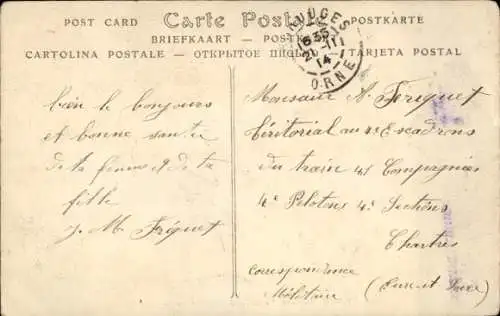 POST CARD Carte Postale POSTKARTE
BRIEFKAART — POSTK
CARTOLINA POSTALE — ОТКРЫТОЕ ПИСЬМО — TARJETA POSTAL
ORNE
bien le bonjours
et bonne santée
de ta femme et de ta
fille
J. M. Fréquet
Monsieur A. Fréquet
Téritorial au 4e Escadrons
du train 41 Compagnies
4e Pelotons 4e Sections
Chartres
(Eure et Loire)
correspondance
Militaire